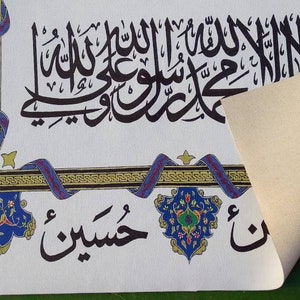 الا الله محمد رسول الله علي ولي الله
حُسَين